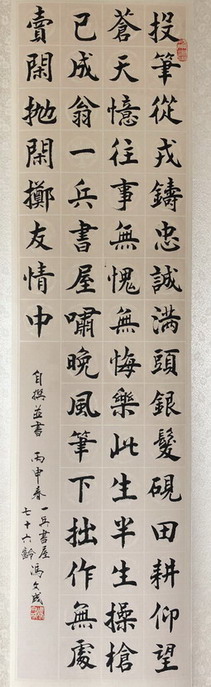 投筆從戎鑄忠誠滿頭銀髮硯田耕仰望
蒼天憶往事無愧無悔樂此生半生操槍
已成翁一兵書屋嘯晚風筆下拙作無處
賣閑拋閑擲友情中
自撰並書 丙申春 一兵書屋
七十六齡 馮